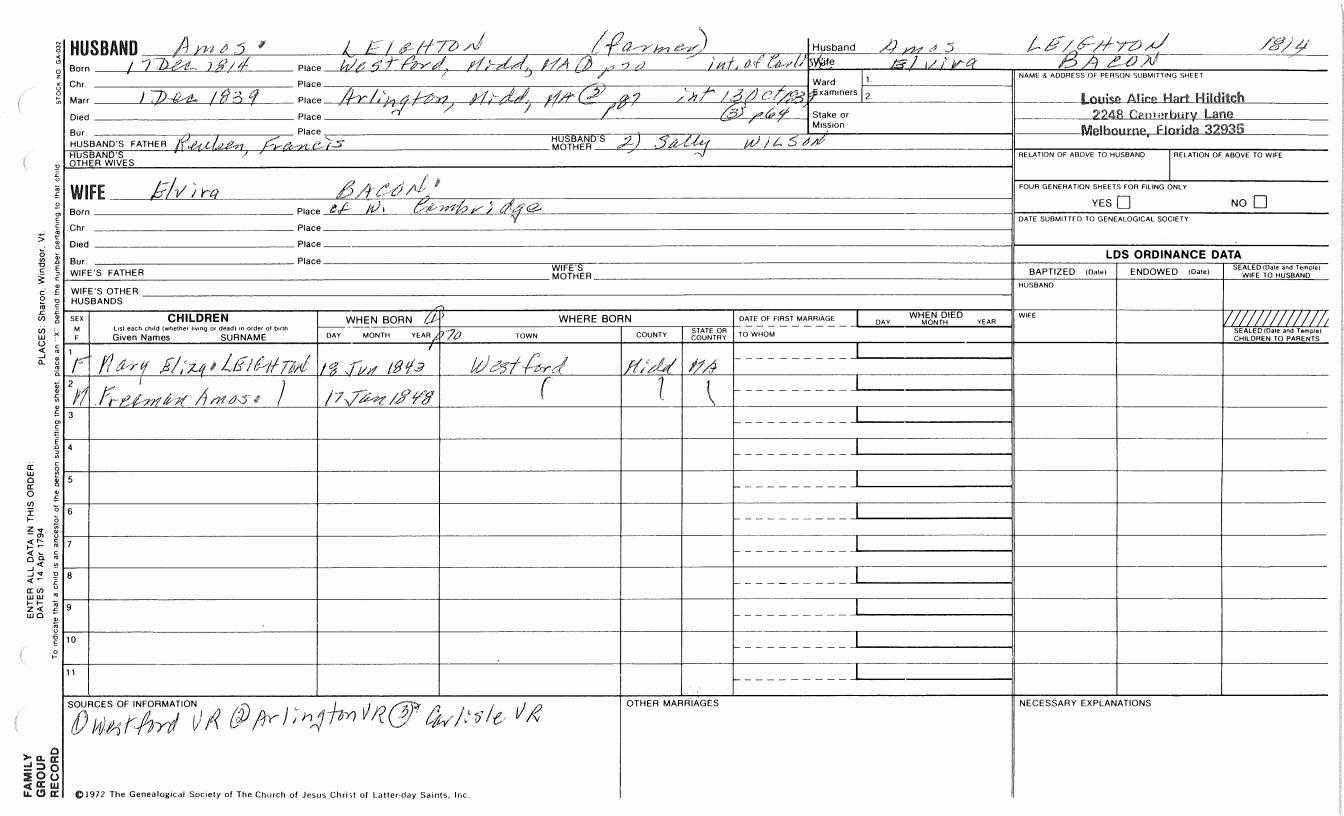 HUSBAND Amos LEIGHTON (farmer)
Born 17 Dec 1814 Place Westford, Midd, MA ① p70 int. of Carlisle
Chr. Place
Marr 1 Dec 1839 Place Arlington, Midd, MA ② p87 int 13 Oct 1839
Died Place ③ p64
Bur. Place
HUSBAND'S FATHER Reuben, Francis HUSBAND'S MOTHER 2) Sally WILSON
HUSBAND'S OTHER WIVES
Husband Amos LEIGHTON 1814
Wife Elvira BACON
Ward 1.
Examiners 2.
Stake or Mission
NAME & ADDRESS OF PERSON SUBMITTING SHEET
Louise Alice Hart Hilditch
2248 Canterbury Lane
Melbourne, Florida 32935
RELATION OF ABOVE TO HUSBAND RELATION OF ABOVE TO WIFE
FOUR GENERATION SHEETS FOR FILING ONLY
YES NO
DATE SUBMITTED TO GENEALOGICAL SOCIETY
WIFE Elvira BACON
Born Place of W. Cambridge
Chr. Place
Died Place
Bur. Place
WIFE'S FATHER WIFE'S MOTHER
WIFE'S OTHER HUSBANDS
LDS ORDINANCE DATA
BAPTIZED (Date) ENDOWED (Date) SEALED (Date and Temple) WIFE TO HUSBAND
HUSBAND
WIFE
SEALED (Date and Temple) CHILDREN TO PARENTS
SEX M F CHILDREN WHEN BORN ① WHERE BORN DATE OF FIRST MARRIAGE WHEN DIED
List each child (whether living or dead) in order of birth
Given Names SURNAME DAY MONTH YEAR p70 TOWN COUNTY STATE OR COUNTRY TO WHOM DAY MONTH YEAR
1 F Mary Eliza LEIGHTON 18 Jun 1843 Westford Midd MA
2 M Freeman Amos 17 Jan 1848
3
4
5
6
7
8
9
10
11
SOURCES OF INFORMATION OTHER MARRIAGES NECESSARY EXPLANATIONS
① Westford VR ② Arlington VR ③ Carlisle VR
©1972 The Genealogical Society of The Church of Jesus Christ of Latter-day Saints, Inc.
STOCK NO. GA-032
To indicate that a child is an ancestor of the person submitting the sheet, place an "X" behind the number pertaining to that child.
PLACES: Sharon, Windsor, Vt.
ENTER ALL DATA IN THIS ORDER:
DATES: 14 Apr 1794
FAMILY
GROUP
RECORD